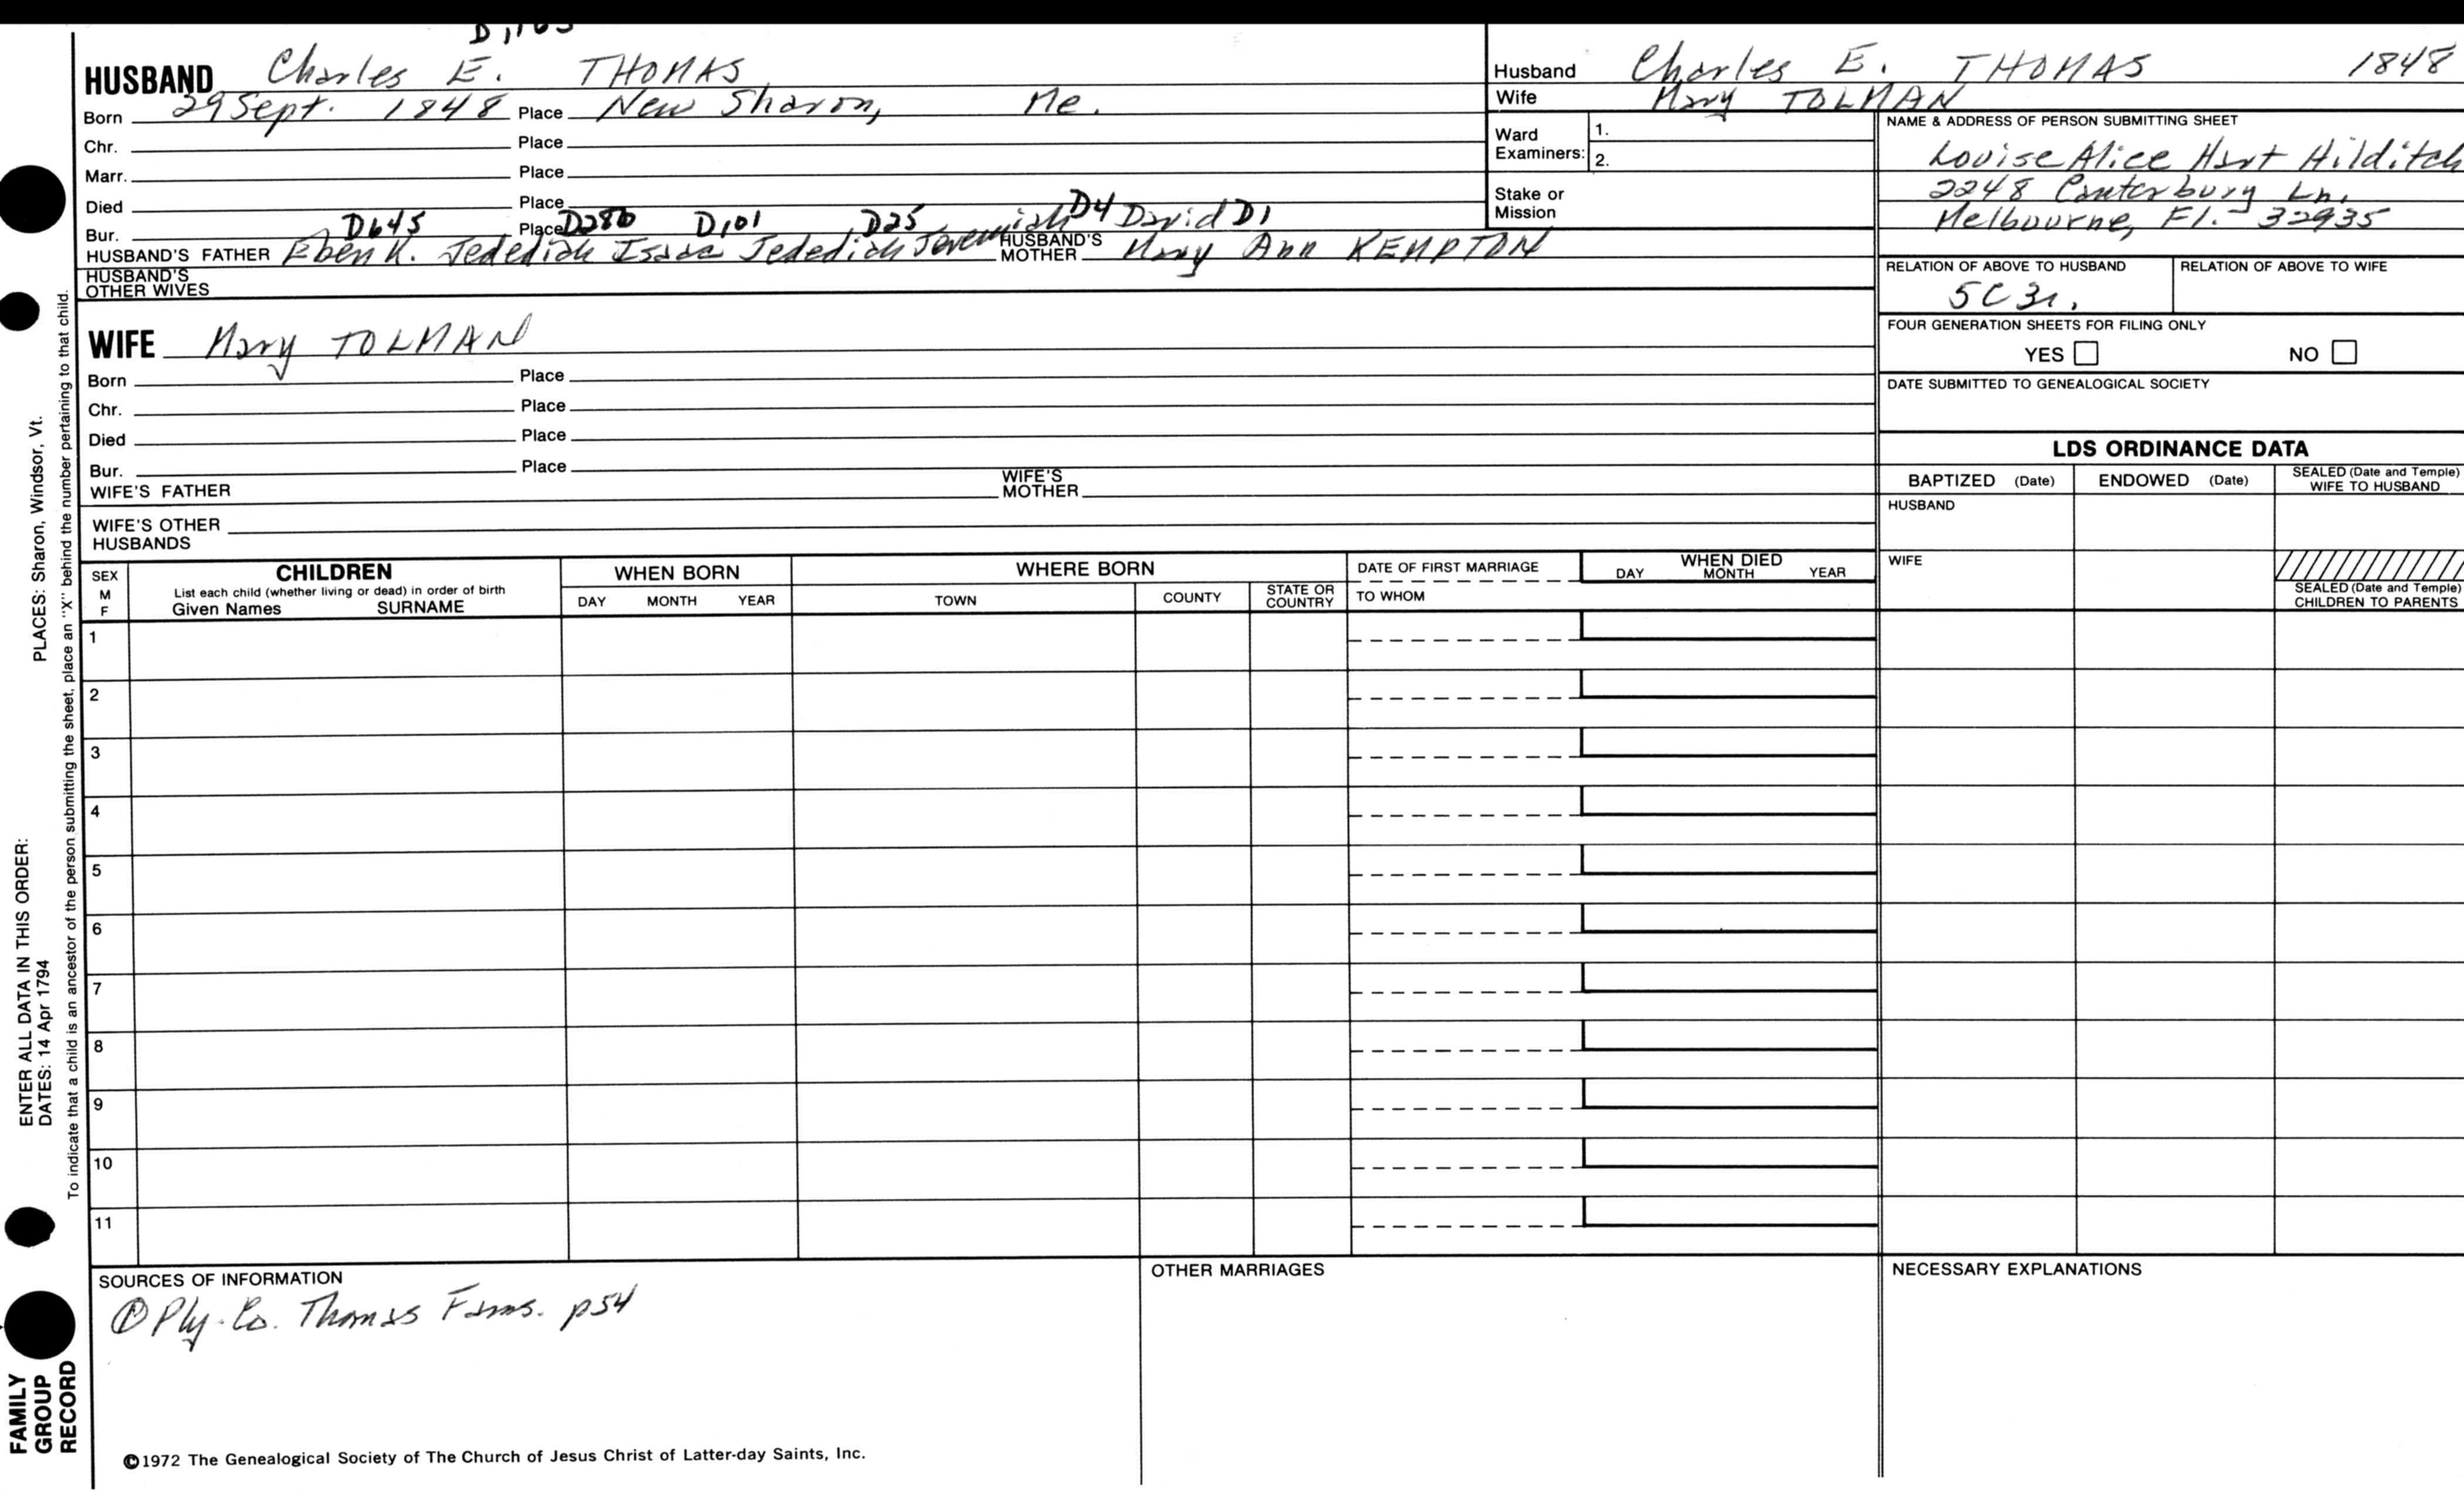 HUSBAND Charles E. THOMAS
Born 29 Sept. 1848 Place New Sharon, Me.
Chr. Place
Marr. Place
Died Place
Bur. Place
D645 D286 D,101 D25 D4 David D1
HUSBAND'S FATHER Eben K. Jedediah Isaac Jedediah Jeremiah HUSBAND'S MOTHER Mary Ann KEMPTON
HUSBAND'S OTHER WIVES
WIFE Mary TOLMAN
Born Place
Chr. Place
Died Place
Bur. Place
WIFE'S FATHER WIFE'S MOTHER
WIFE'S OTHER HUSBANDS
Husband Charles E. THOMAS 1848
Wife Mary TOLMAN
Ward Examiners: 1.
2.
Stake or Mission
NAME & ADDRESS OF PERSON SUBMITTING SHEET
Louise Alice Hart Hilditch
2248 Canterbury Ln.
Melbourne, Fl. - 32935
RELATION OF ABOVE TO HUSBAND RELATION OF ABOVE TO WIFE
5C3r.
FOUR GENERATION SHEETS FOR FILING ONLY
YES NO
DATE SUBMITTED TO GENEALOGICAL SOCIETY
LDS ORDINANCE DATA
BAPTIZED (Date) ENDOWED (Date) SEALED (Date and Temple) WIFE TO HUSBAND
HUSBAND
WIFE
SEALED (Date and Temple) CHILDREN TO PARENTS
SEX M F
CHILDREN
List each child (whether living or dead) in order of birth
Given Names SURNAME
WHEN BORN
DAY MONTH YEAR
WHERE BORN
TOWN COUNTY STATE OR COUNTRY
DATE OF FIRST MARRIAGE
TO WHOM
WHEN DIED
DAY MONTH YEAR
1
2
3
4
5
6
7
8
9
10
11
SOURCES OF INFORMATION
① Ply. Co. Thomas Fams. p54
OTHER MARRIAGES
NECESSARY EXPLANATIONS
©1972 The Genealogical Society of The Church of Jesus Christ of Latter-day Saints, Inc.
FAMILY
GROUP
RECORD
ENTER ALL DATA IN THIS ORDER:
DATES: 14 Apr 1794
PLACES: Sharon, Windsor, Vt.
To indicate that a child is an ancestor of the person submitting the sheet, place an "X" behind the number pertaining to that child.